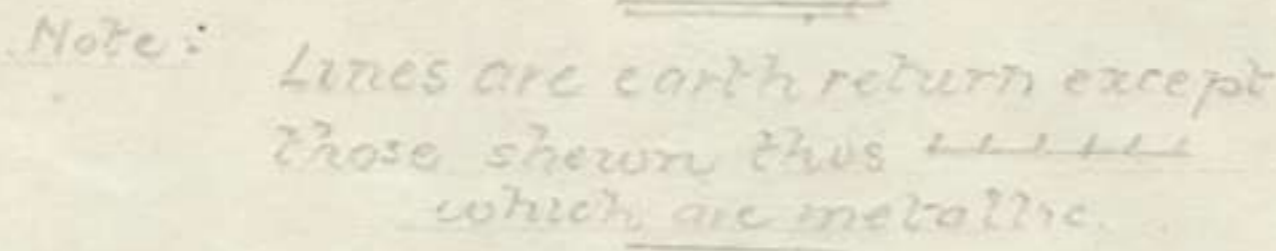 Note:
Lines are earth return except
those shewn thus
which are metallic.